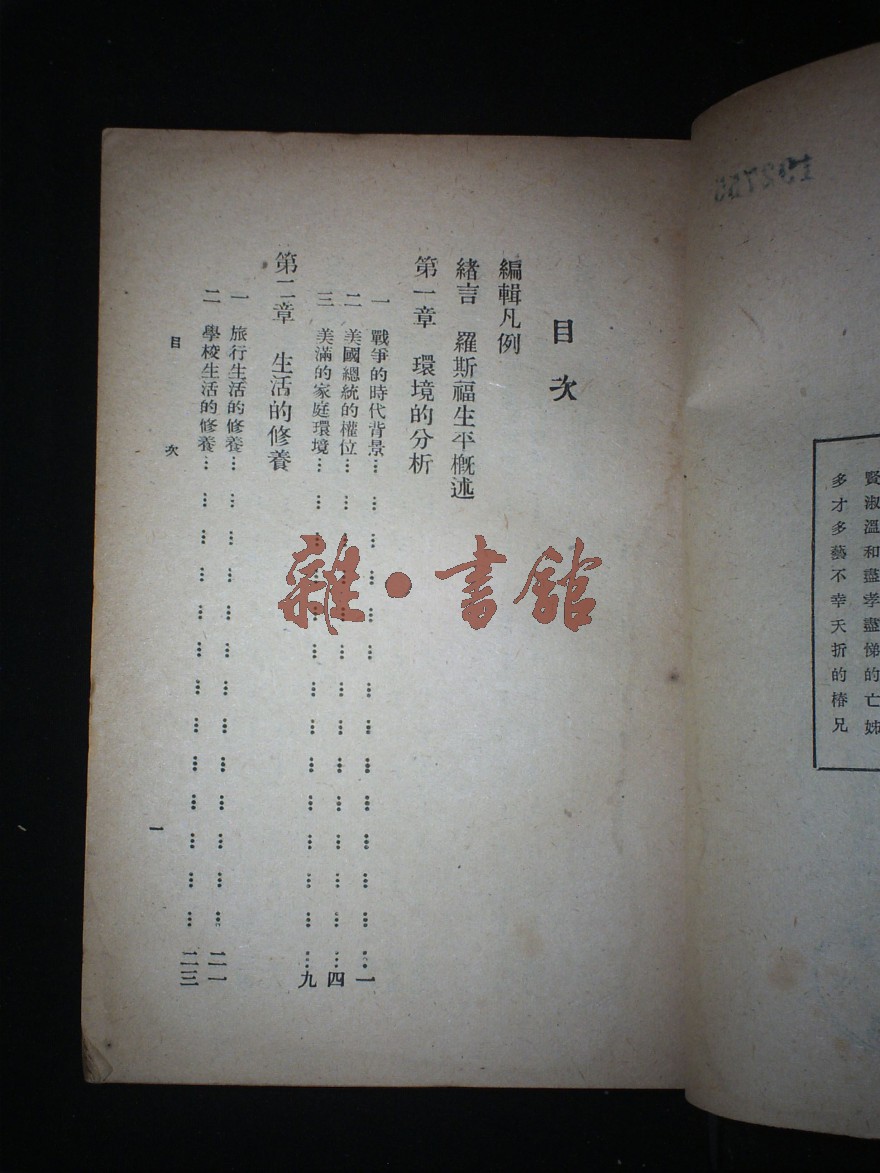 賢淑溫和盡孝盡悌的亡姊
多才多藝不幸夭折的椿兄
目次
編輯凡例
緒言 羅斯福生平概述
第一章 環境的分析
一 戰爭的時代背景…………………………………一
二 美國總統的權位…………………………………四
三 美滿的家庭環境…………………………………九
第二章 生活的修養
一 旅行生活的修養…………………………………二一
二 學校生活的修養…………………………………二三
目次
一
雜·書館